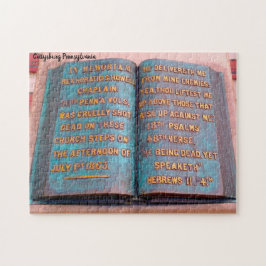 Gettysburg Pennsylvania
IN MEMORIAM
REV. HORATIO S. HOWELL
CHAPLAIN
PENNA VOLS.
WAS CRUELLY SHOT
DEAD ON THESE
CHURCH STEPS ON
THE AFTERNOON OF
JULY 1ST 1863.
HE DELIVERETH ME
FROM MINE ENEMIES:
YEA, THOU LIFTEST ME
UP ABOVE THOSE THAT
RISE UP AGAINST ME
18TH PSALMS
48TH VERSE
"HE BEING DEAD YET
SPEAKETH"
HEBREWS